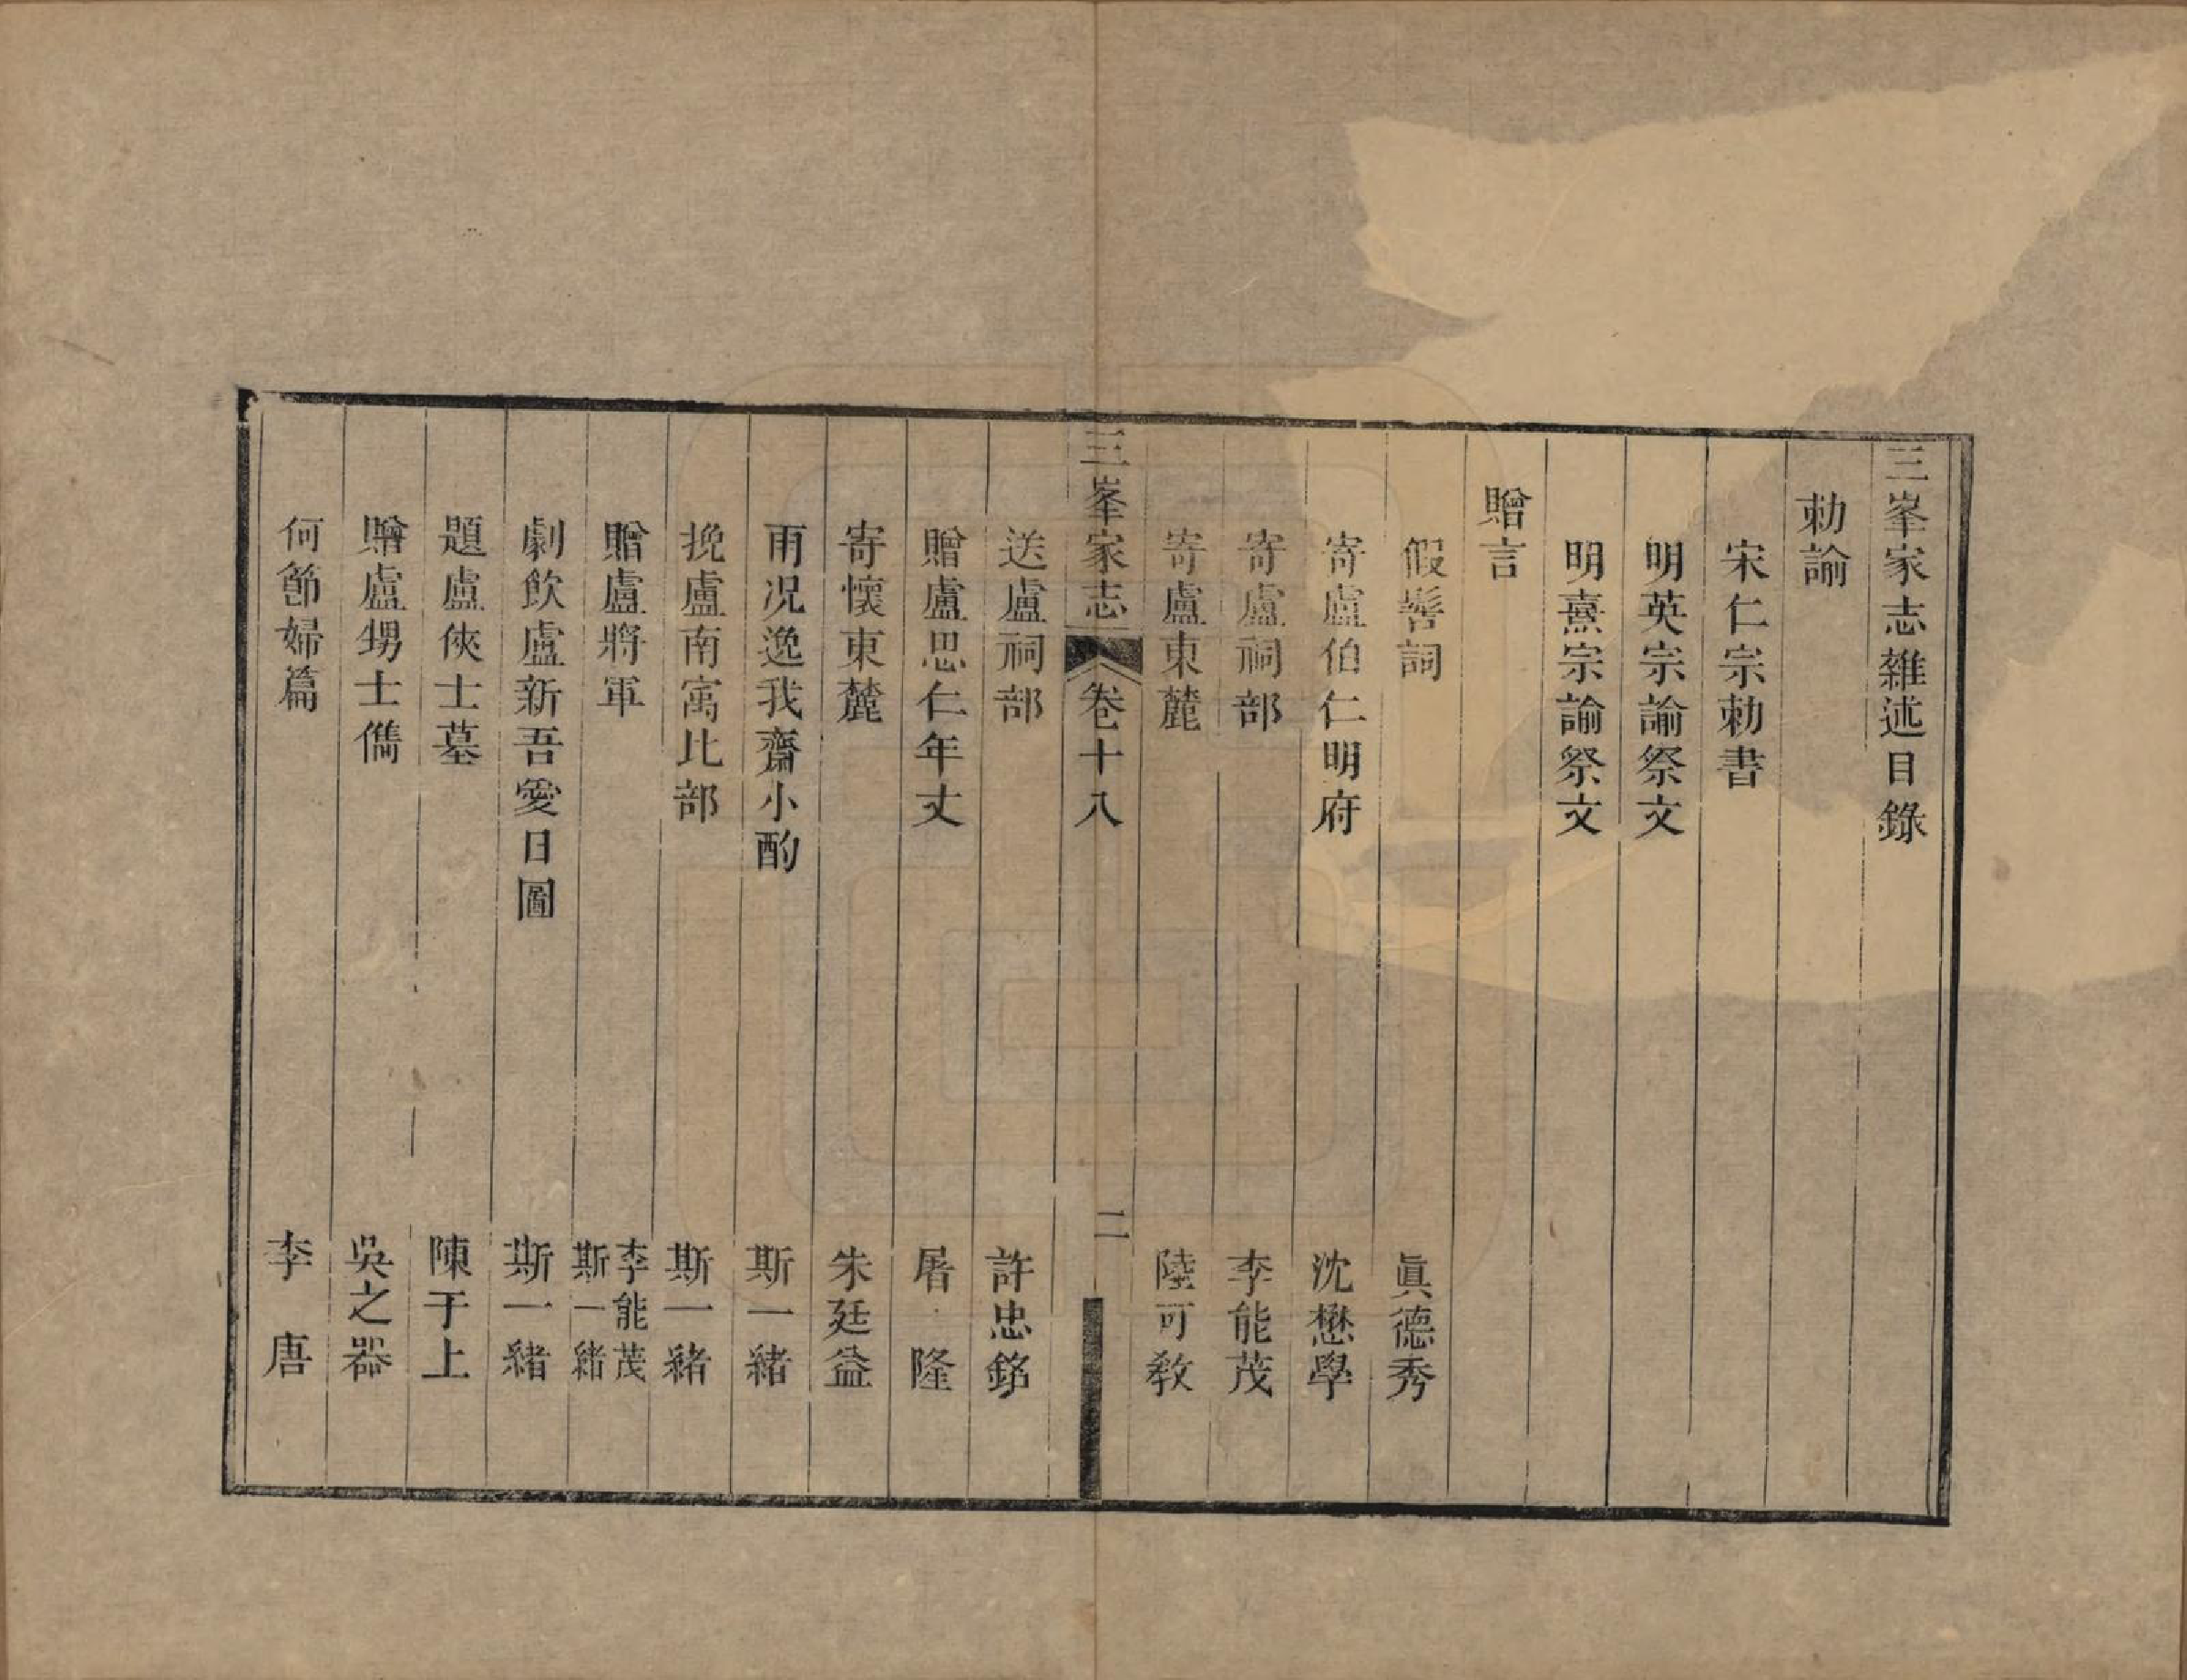 三峯家志雜述目錄
勅諭
宋仁宗勅書
明英宗諭祭文
明熹宗諭祭文
贈言
假髻詞 眞德秀
寄盧伯仁明府 沈懋學
寄盧祠部 李能茂
寄盧東麓 陸可敎
三峯家志 卷十八 二
送盧祠部 許忠銘
贈盧思仁年丈 屠隆
寄懷東麓 朱廷益
雨况逸我齋小酌 斯一緒
挽盧南寓比部 斯一緒
贈盧將軍 李能茂 斯一緒
劇飲盧新吾愛日圖 斯一緒
題盧俠士墓 陳于上
贈盧甥士儁 吳之器
何節婦篇 李唐